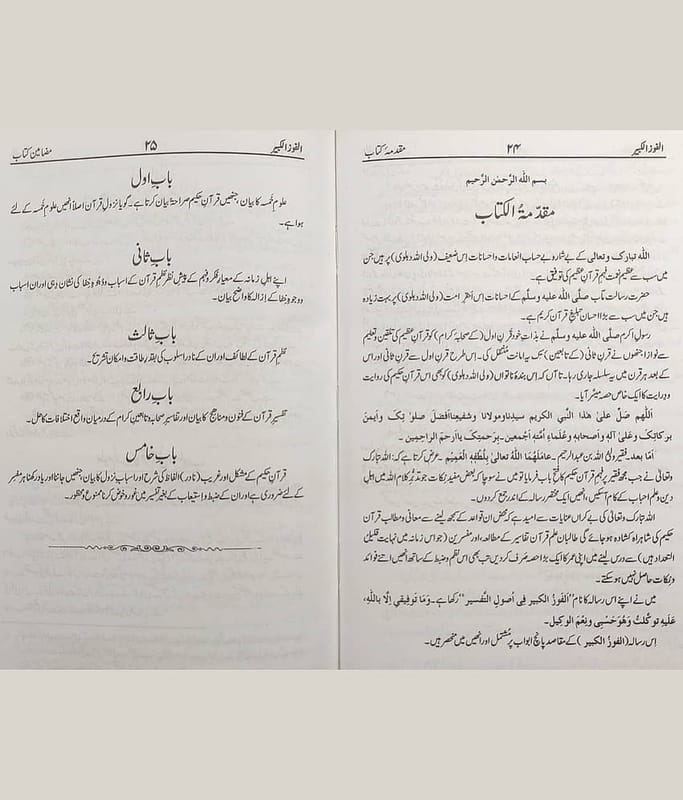 الفوز الکبیر
۲۴
مقدمۂ کتاب
بسم اللہ الرَّحمٰن الرَّحیم
مقدّمۃُ الکتاب
اللہ تبارک و تعالی کے بے شمار و بے حساب انعامات و احسانات اس ضعیف (ولی اللہ دہلوی) پر ہیں جن
میں سب سے عظیم نعمت فہمِ قرآنِ عظیم کی توفیق ہے۔
حضرت رسالت مآب صلّی اللہ علیہ وسلّم کے احسانات اِس احقرِ امت (ولی اللہ دہلوی) پر بہت زیادہ
ہیں جن میں سب سے بڑا احسان تبلیغِ قرآن کریم ہے۔
رسولِ اکرم صلّی اللہ علیہ وسلّم نے بذاتِ خود قرنِ اول (کے صحابۂ کرام) کو قرآنِ عظیم کی تلقین و تعلیم
سے نوازا جنھوں نے قرنِ ثانی (کے تابعین) تک یہ امانت منتقل کی۔ اس طرح قرنِ اول سے قرنِ ثانی اور اس
کے بعد ہر قرن میں یہ سلسلہ جاری رہا۔ تا آں کہ اِس بندۂ ناتواں (ولی اللہ دہلوی) کو بھی اس قرآنِ حکیم کی روایت
و درایت کا ایک خاص حصہ میسّر آیا۔
اللّٰهم صَلِّ علیٰ هذا النَّبي الكريم سيدِنا ومولانا وشفيعِنا أفضلَ صلوٰتِكَ وأيمنَ
بركاتِكَ وعَلىٰ آلهٖ وأصحابهٖ وعُلماءِ أمَّتهٖ أجمعين۔ بِرحمتِكَ يا أرحمَ الراحِمِين ۔
اَمّا بعد۔ فقیر ولی اللہ بن عبدالرحیم ۔ عامَلَهُمَا اللّٰهُ تعالیٰ بِلُطْفِهِ الْعَمِيم ۔ عرض کرتا ہے کہ: اللہ تبارک
وتعالیٰ نے جب مجھ فقیر پر فہمِ قرآنِ حکیم کا فتحِ باب فرمایا تو میں نے سوچا کہ بعض مفید نکات جو تدبُّرِ کلام اللہ میں اہلِ
دین و علم احباب کے کام آسکیں، انھیں ایک مختصر رسالہ کے اندر جمع کردوں۔
اللہ تبارک وتعالیٰ کی بے کراں عنایات سے امید ہے کہ محض ان قواعد کے سمجھ لینے سے معانی و مطالبِ قرآنِ
حکیم کی شاہراہ کشادہ ہو جائے گی طالبانِ علمِ قرآن تفاسیر کے مطالعہ اور مفسرین (جو اس زمانہ میں نہایت قلیلُ
التعداد ہیں) سے درس لینے میں اپنی عمر کا ایک بڑا حصہ صَرف کر دیں تب بھی اس نظم وضبط کے ساتھ انھیں اتنے فوائد
و نکات حاصل نہیں ہو سکتے۔
میں نے اپنے اس رسالہ کا نام ”الفَوزُ الکَبیر فی أصولِ التَّفسیر“ رکھا ہے۔ وَمَا تَوفِيقِي إلَّا بِاللّٰهِ،
عَلَيهِ تَوَكَّلتُ وَهُوَ حَسْبِي ونِعمَ الوكِيل۔
اِس رسالہ (الفوزُ الکبیر) کے مقاصد پانچ ابواب پر مُشتمل اور انھیں میں منحصر ہیں۔
الفوز الکبیر
۲۵
مضامینِ کتاب
بابِ اول
علومِ خمسہ کا بیان جنھیں قرآنِ حکیم صراحۃً بیان کرتا ہے۔ گویا نزولِ قرآن اصلاً انھیں علومِ خمسہ کے لئے
ہوا ہے۔
بابِ ثانی
اپنے اہلِ زمانہ کے معیارِ فکر و فہم کے پیشِ نظر نظمِ قرآن کے اسباب و وجوہِ خفا کی نشان دہی اور ان اسباب
و وجوہِ خفا کے ازالہ کا واضح بیان۔
بابِ ثالث
نظمِ قرآن کے لطائف اور ان کے نادر اسلوب کی بقدرِ طاقت و امکان تشریح۔
بابِ رابع
تفسیرِ قرآن کے فنون و مناہج کا بیان اور تفاسیرِ صحابہ و تابعینِ کرام کے درمیان واقع اختلافات کا حل۔
بابِ خامس
قرآنِ حکیم کے مشکل اور غریب (نادر) الفاظ کی شرح اور اسبابِ نزول کا بیان جنھیں جاننا اور یاد رکھنا ہر مفسر
کے لئے ضروری ہے اور ان کے ضبط و استیعاب کے بغیر تفسیر میں غور و خوض کرنا ممنوع و محظور۔